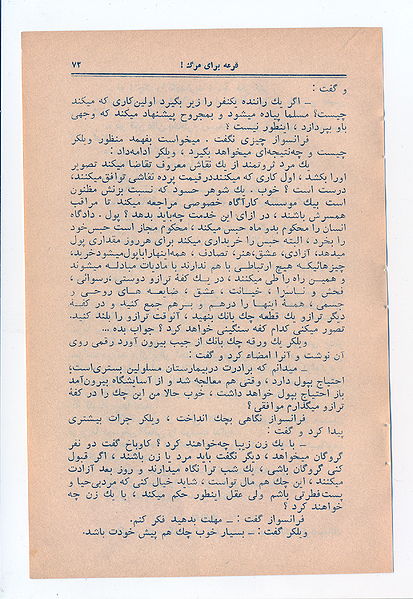 قرعه برای مرگ !
۷۳
و گفت :
ــ اگر یك راننده یکنفر را زیر بگیرد اولین‌کاری که میکند
چیست؟ مسلما پیاده میشود و بمجروح پیشنهاد میکند که وجهی
باو بپردازد ، اینطور نیست ؟
فرانسواز چیزی نگفت . میخواست بفهمد منظور ویلکر
چیست و چه‌نتیجه‌ای میخواهد بگیرد ، ویلکر ادامه‌داد :
یك مرد ثروتمند از یك نقاش معروف تقاضا میکند تصویر
اورا بکشد ، اول کاری که میکنند‌درقیمت پرده نقاشی توافق‌میکنند،
درست است ؟ خوب . یك شوهر حسود که نسبت بزنش مظنون
است بیك موسسه کارآگاه خصوصی مراجعه میکند تا مراقب
همسرش باشند ، در ازای این خدمت چه‌باید بدهد ؟ پول . دادگاه
انسان را محکوم بدو ماه حبس میکند ، محکوم مجاز است حبس‌خود
را بخرد ، البته حبس را خریداری میکند برای هرروز مقداری پول
میدهد، آزادی، عشق،هنر، تصادف ، همه‌اینهارابا‌پول‌میشود‌خرید،
چیزهائیکه هیچ ارتباطی با هم ندارند با مادیات مبادلـه میشوند
و همیـن راه را طی میکنند ، در یـك کفهٔ ترازو دوستی ،رسوائی ،
فحش و ناسـزا ، خیـانت ، عشق ، ضایعـه هـای روحـی و
جسمی ، همـهٔ اینهـا را درهـم و بـرهم جمع کنید و در کفـهٔ
دیگر ترازو یك قطعه چك بانك بنهید ، آنوقت ترازو را بلند کنید.
تصور میکنی کدام کفه سنگینی خواهد کرد ؟ جواب بده ...
ویلکر یك ورقه چك بانك از جیب بیرون آورد رقمی روی
آن نوشت و آنرا امضاء کرد و گفت :
ــ میدانم که برادرت دربیمارستان مسلولین بستری‌است،
احتیاج بپول دارد ، وقتی هم معالجه شد و از آسایشگاه بیرون‌آمد
باز احتیاج بپول خواهد داشت ، خوب حالا من این چك را در کفهٔ
ترازو میگذارم موافقی ؟
فرانسواز نگاهی بچك انداخت ، ویلکر جرات بیشتری
پیدا کرد و گفت :
ــ با یك زن زیبا چه‌خواهند کرد ؟ کاوباخ گفت دو نفر
گروگان میخواهد ، دیگر نگفت باید مرد یا زن باشند ، اگر قبول
کنی گروگان باشی ، یك شب ترا نگاه میدارند و روز بعد آزادت
میکنند ، این چك هم مال تواست ، شاید خیال کنی که مردبی‌حیا و
پست‌فطرتی باشم ولی عقل اینطور حکم میکند ، با یك زن چه
خواهند کرد ؟
فرانسواز گفت : ــ مهلت بدهید فکر کنم.
ویلکر گفت : ــ بسیار خوب چك هم پیش خودت باشد.